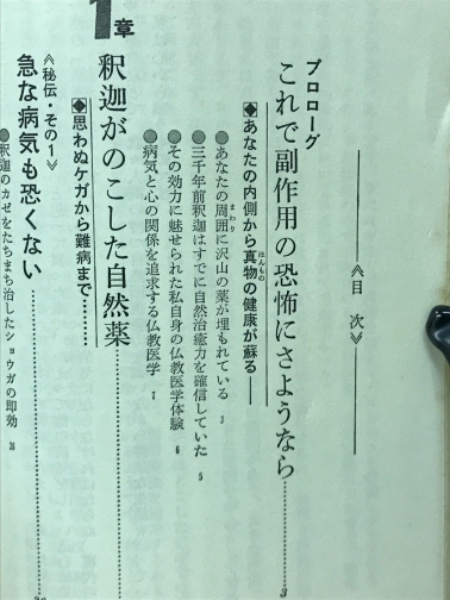 《目 次》
プロローグ
これで副作用の恐怖にさようなら……3
◆あなたの内側から真物の健康が蘇る——
ほんもの
●あなたの周囲に沢山の薬が埋もれている 3
まわり
●三千年前釈迦はすでに自然治癒力を確信していた 5
●その効力に魅せられた私自身の仏教医学体験 6
●病気と心の関係を追求する仏教医学
1章
釈迦がのこした自然薬
◆思わぬケガから難病まで………
《秘伝・その1》
急な病気も恐くない
●釈迦のカゼをたちまち治したショウガの即効